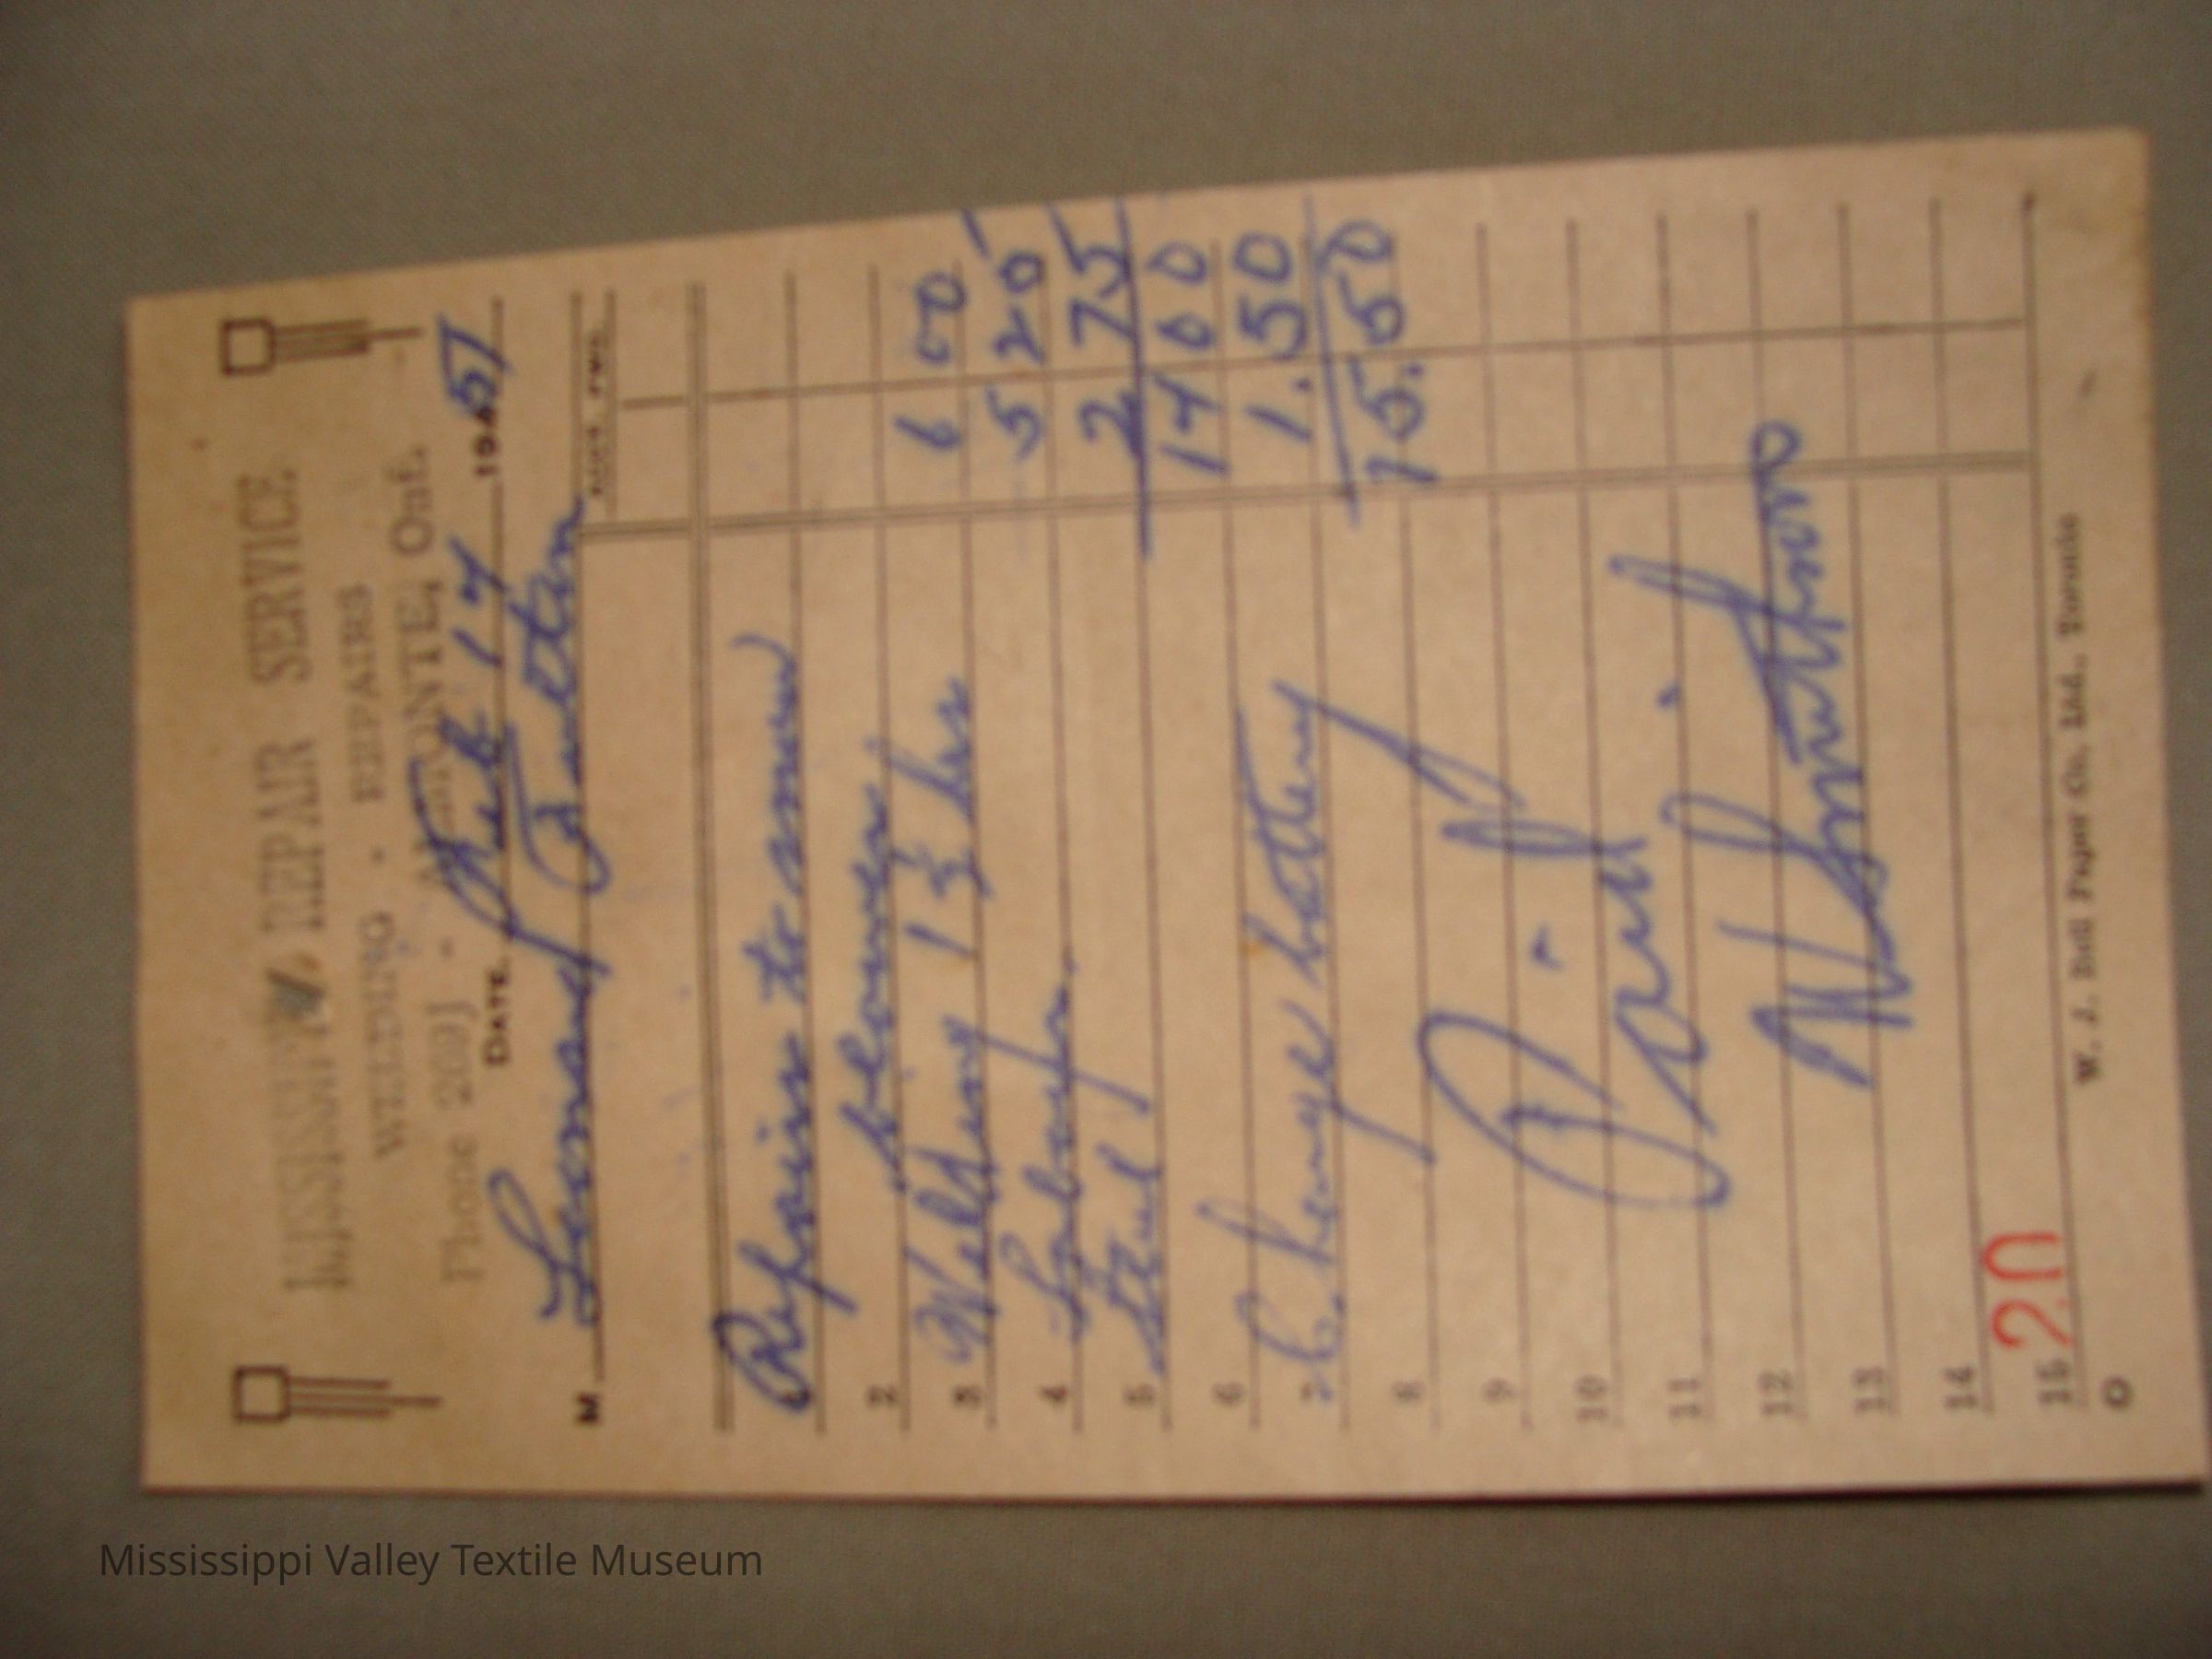 MISSISSIPPI REPAIR SERVICE
WELDING - REPAIRS
Phone 209J - ALMONTE, Ont.
DATE. Feb 17 1951
M Leonard
ACCT. FWD.
1 Repairs to snow
2 blower
3 Welding 1 1/2 hrs 6 00
4 Labour 5 20
5 Steel 2 75
6 14 00
7 Charge battery 1.50
8 15.50
9
10 Paid
11
12
13
14
15 20
O W. J. Bell Paper Co., Ltd., Toronto
Mississippi Valley Textile Museum